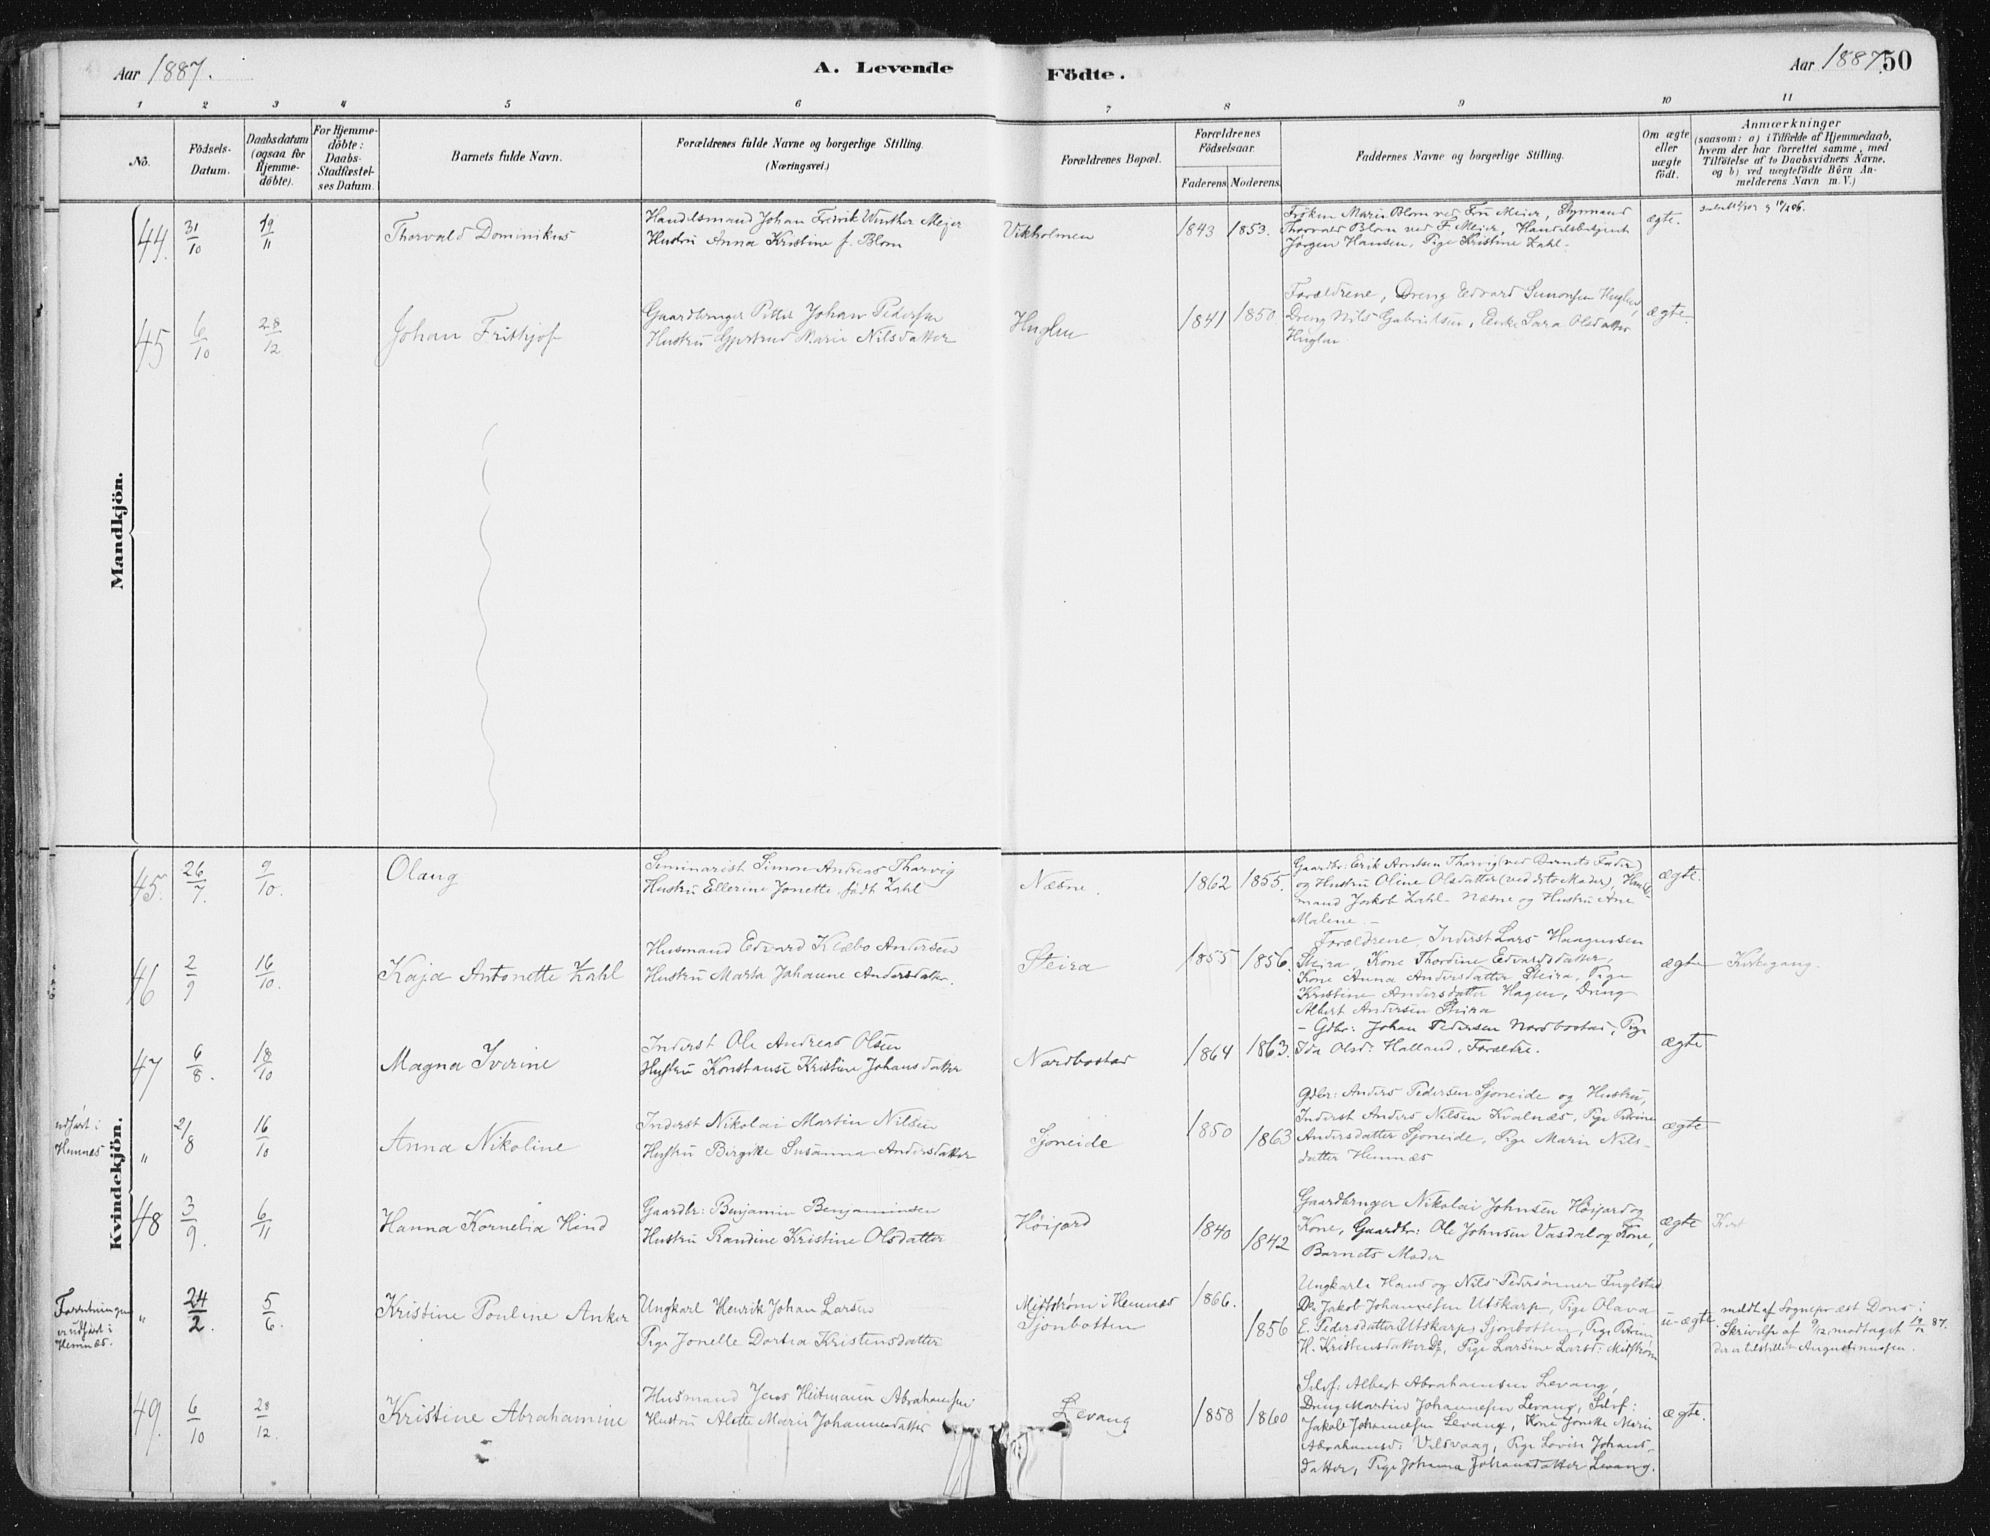 Aar 1887.
A. Levende Födte.
Aar 1887. 50
1 2 3 4 5 6 7 8 9 10 11
No.
Födsels-
Datum.
Daabsdatum
(ogsaa for
Hjemme-
döbte).
For Hjemme-
döbte:
Daabs-
Stadfæstel-
ses Datum.
Barnets fulde Navn.
Forældrenes fulde Navne og borgerlige Stilling.
(Næringsvei.)
Forældrenes Bopæl.
Forældrenes
Födselsaar.
Faderens. Moderens.
Faddernes Navne og borgerlige Stilling.
Om ægte
eller
uægte
født.
Anmærkninger
(saasom: a) i Tilfælde af Hjemmedaab,
hvem der har forrettet samme, med
Tilföielse af to Daabsvidners Navne,
og b) ved uægtefödte Börn An-
melderens Navn m. V.)
Mandkjön.
44. 31/10 19/11 Thorvald Dominikus
Handelsmand Johan Fredrik Winther Mejer
Hustru Anna Kristine f. Blom
Vikholmen 1843 1853.
Frøken Marie Blom ved Fru Meier, Styrmand
Thorvald Blom ved F. Meier, Handelsbetjent
Jørgen Hansen, Pige Kristine Zahl.
ægte.
45 6/10 28/12 Johan Frithjof
Gaardbruger Petter Johan Pedersen
Hustru Gjertrud Marie Nilsdatter
Huglen 1841 1850.
Forældrene, Dreng Edvard Simonsen Huglen,
Dreng Nils Gabrielsen, Enke Sara Olsdatter
Huglen
ægte.
Kvindekjön.
45. 26/7. 9/10. Olaug
Seminarist Simon Andreas Tharvig
Hustru Ellerine Jonette født Zahl
Næsne. 1862 1855.
Gaardbr: Erik Arntsen Tharvig (ved Barnets Fader)
og Hustru Oline Olsdatter (ved dito Moder), Handels-
mand Jakob Zahl Næsne og Hustru Ane
Malene.
ægte.
46 2/9 16/10. Kaja Antonette Zahl
Husmand Edvard Klæbo Andersen
Hustru Marta Johanne Andersdatter.
Steira 1855 1856.
Forældrene, Inderst Lars Haagensen
Steira, Kone Thordine Edvardsdatter,
Kone Anna Andersdatter Steira, Pige
Kristine Andersdatter Hagen, Dreng
Albert Andersen Steira
ægte Kirkegang.
47 6/8. 18/10 Magna Iverine
Inderst Ole Andreas Olsen
Hustru Konstanse Kristine Johansdatter
Nordbostad 1864 1863.
- Gdbr: Johan Pedersen Nordbostad, Pige
Ida Olsd: Halland, Forældre.
ægte
udført i
Hemnæs
" 2/8 16/10 Anna Nikoline
Inderst Nikolai Martin Nilsen
Hustru Birgitte Susanna Andersdatter
Sjoneide 1850 1863
Gdbr: Anders Pedersen Sjoneide og Hustru,
Inderst Anders Nilsen Kvalnæs, Pige Petrine
Andersdatter Sjoneide, Pige Marie Nils-
datter Hemnæs
ægte
48 3/9. 6/11 Hanna Kornelia Hind
Gaardbr: Benjamin Benjaminsen
Hustru Randine Kristine Olsdatter
Høijord 1840 1842
Gaardbruger Nikolai Johnsen Høijord og
Kone, Gaardbr: Ole Johnsen Vasdal og Kone,
Barnets Moder
ægte
Forretningen
er udført i
Hemnæs.
" 24/2 5/6. Kristine Pouline Anker
Ungkarl Henrik Johan Larsen
Pige Jonelle Dortea Kristensdatter
Midtstrøm i Hemnæs
Sjonbotten
1866. 1856
Ungkarle Hans og Nils Pedersønner Fuglstad
Do. Jakob Johannesen Utskarp, Pige Olava
E. Pedersdatter Utskarp, Sjonbotten, Pige Petrine
H. Kristensdatter Do, Pige Larsine Larsd: Midtstrøm
u-ægte
meldt af Sogneprest Dons i
Skrivelse af 9/12 modtaget 19/12 87.
der er tilstillet Augustinussen.
49. 6/10 28/12. Kristine Abrahamine
Husmand Jens Heitmann Abrahamsen
Hustru Alette Marie Johannesdatter
Levang 1858 1860
Selvf: Albert Abrahamsen Levang,
Dreng Martin Johannesen Levang, Selvf:
Jakob Johannesen Levang, Kone Marie
Abrahamsd: Vilsvaag, Pige Lovise Johans-
datter, Pige Johanna Johansdatter Levang.
ægte.